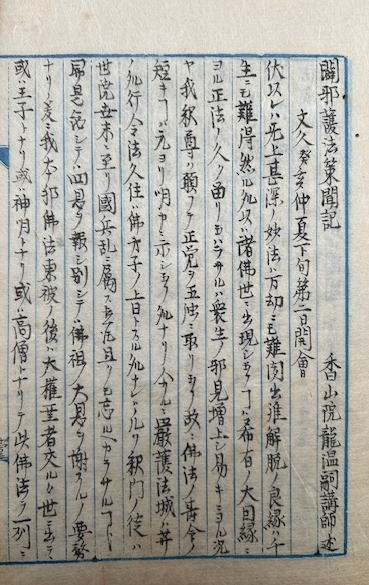 闢邪護法策聞記　香山院龍温嗣講師述
文久癸亥仲夏下旬第二日開會
伏以レハ无上甚深ノ妙法ハ百劫ニモ難聞出離解脱ノ良縁ハ千
生ニモ難得然ル処ハ諸佛世ニ出現シタマフハ希有ノ大因縁ニ
ヨル正法ノ久ク留リ サルハ衆生ノ邪見増上シ易キニヨル況
ヤ我釈尊ハ願フテ正覚ヲ五濁ニ取リ玉フ故ニ佛法ノ壽命ノ
短キコハ元ヨリ明カニ示シ玉フ処ナリ 嚴護法城ハ
行令法久住ハ佛弟子ノ 処ナレハ 釈門ノ徒ハ
世 世末ニ至リ國兵乱ニ属スト 且クモ忘ルヘカラサルコト
是 シテハ四恩ヲ報シ別シテハ佛祖ノ大恩ヲ謝スルノ要務
ナリ爰ニ我本邦佛法東被ノ後ハ大權 者交ル 世ニ出テ
或ハ王子トナリ或ハ神明トナリ或ハ高僧トナリテ此佛法ヲ一列ニ